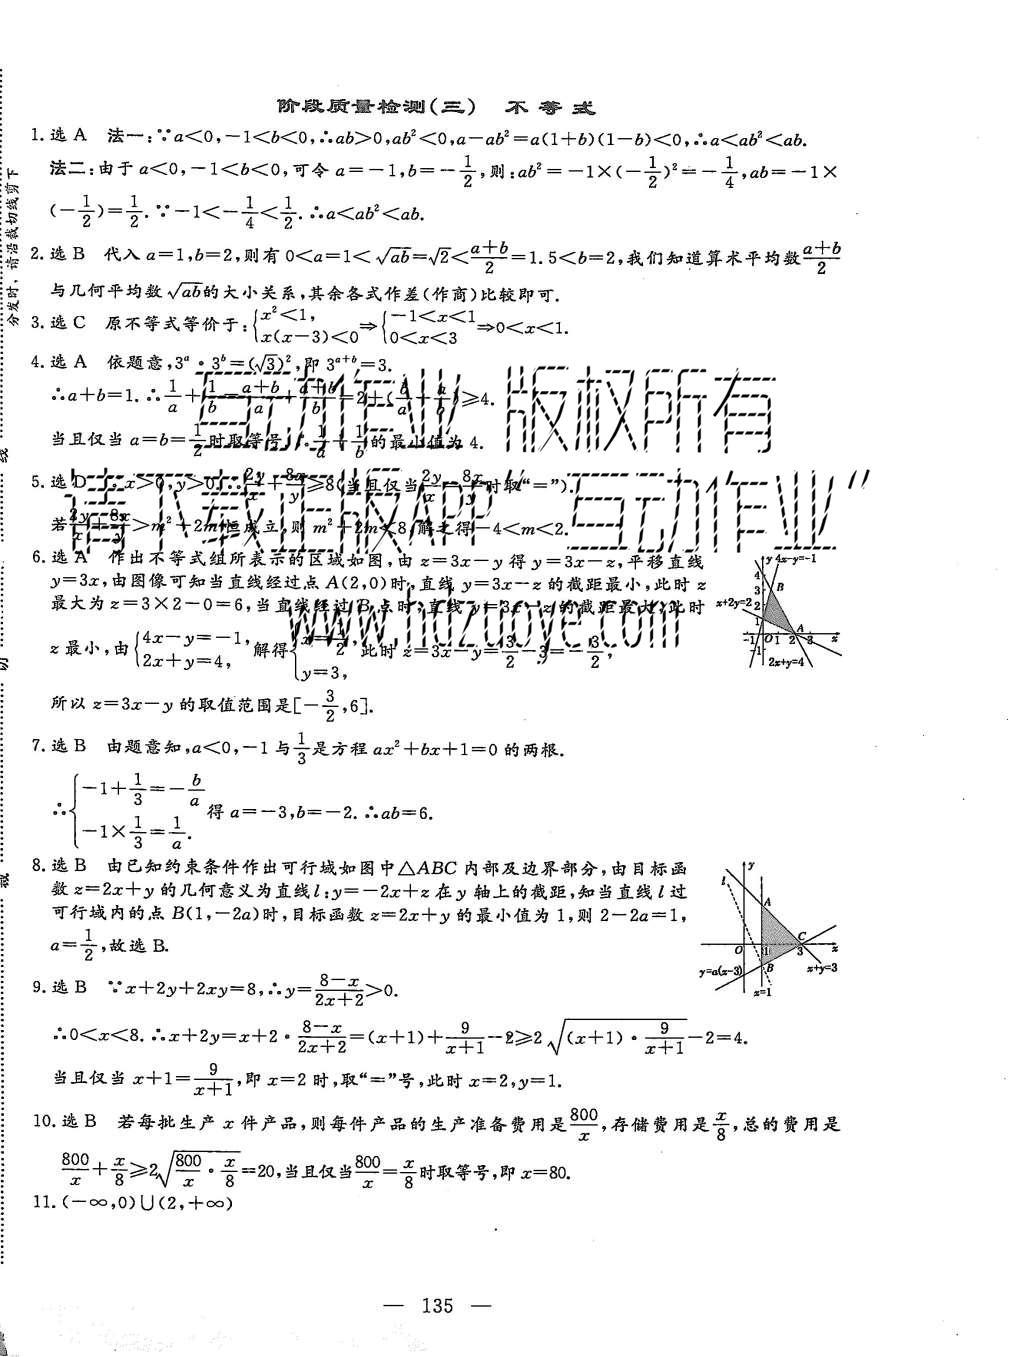 阶段质量检测(三) 不等式
1. 选 A 法一:∵a<0,-1<b<0,∴ab>0,ab²<0,a-ab²=a(1+b)(1-b)<0,∴a<ab²<ab.
法二:由于 a<0,-1<b<0,可令 a=-1,b=-1/2,则:ab²=-1×(-1/2)²=-1/4,ab=-1×
(-1/2)=1/2.∵-1<-1/4<1/2.∴a<ab²<ab.
2. 选 B 代入 a=1,b=2,则有 0<a=1<√ab=√2<(a+b)/2=1.5<b=2,我们知道算术平均数(a+b)/2
与几何平均数√ab的大小关系,其余各式作差(作商)比较即可.
3. 选 C 原不等式等价于:{x²<1, x(x-3)<0⇒{-1<x<1 0<x<3⇒0<x<1.
4. 选 A 依题意,3ᵃ·3ᵇ=(√3)²,即 3ᵃ⁺ᵇ=3.
∴a+b=1.∴1/a+1/b=(a+b)/a+(a+b)/b=2+(b/a+a/b)≥4.
当且仅当 a=b=1/2时取等号,∴1/a+1/b的最小值为 4.
5. 选 D ∵x>0,y>0.∴2y/x+8x/y≥8(当且仅当2y/x=8x/y时取“=”).
若2y/x+8x/y>m²+2m恒成立,则 m²+2m<8,解之得-4<m<2.
6. 选 A 作出不等式组所表示的区域如图,由 z=3x-y 得 y=3x-z,平移直线
y=3x,由图像可知当直线经过点 A(2,0)时,直线 y=3x-z 的截距最小,此时 z
最大为 z=3×2-0=6,当直线经过 B 点时,直线 y=3x-z 的截距最大,此时
z 最小,由{4x-y=-1, 2x+y=4, 解得{x=1/2, y=3, 此时 z=3x-y=3/2-3=-3/2,
所以 z=3x-y 的取值范围是[-3/2,6].
y 4x-y=-1
4
3 B
x+2y=2 2
1 A
-1 O 1 2 3 x
-1
2x+y=4
7. 选 B 由题意知,a<0,-1 与1/3是方程 ax²+bx+1=0 的两根.
∴{-1+1/3=-b/a -1×1/3=1/a. 得 a=-3,b=-2.∴ab=6.
8. 选 B 由已知约束条件作出可行域如图中△ABC 内部及边界部分,由目标函
数 z=2x+y 的几何意义为直线 l:y=-2x+z 在 y 轴上的截距,知当直线 l 过
可行域内的点 B(1,-2a)时,目标函数 z=2x+y 的最小值为 1,则 2-2a=1,
a=1/2,故选 B.
y
l
A
C
O 1 3 x
y=a(x-3) B x+y=3
x=1
9. 选 B ∵x+2y+2xy=8,∴y=(8-x)/(2x+2)>0.
∴0<x<8.∴x+2y=x+2·(8-x)/(2x+2)=(x+1)+9/(x+1)-2≥2√((x+1)·9/(x+1))-2=4.
当且仅当 x+1=9/(x+1),即 x=2 时,取“=”号,此时 x=2,y=1.
10. 选 B 若每批生产 x 件产品,则每件产品的生产准备费用是800/x,存储费用是x/8,总的费用是
800/x+x/8≥2√(800/x·x/8)=20,当且仅当800/x=x/8时取等号,即 x=80.
11. (-∞,0)∪(2,+∞)
— 135 —
分发时,请沿裁切线剪下
线
切
裁
“互动作业”版权所有
请下载正版APP“互动作业”
www.hdzuoye.com